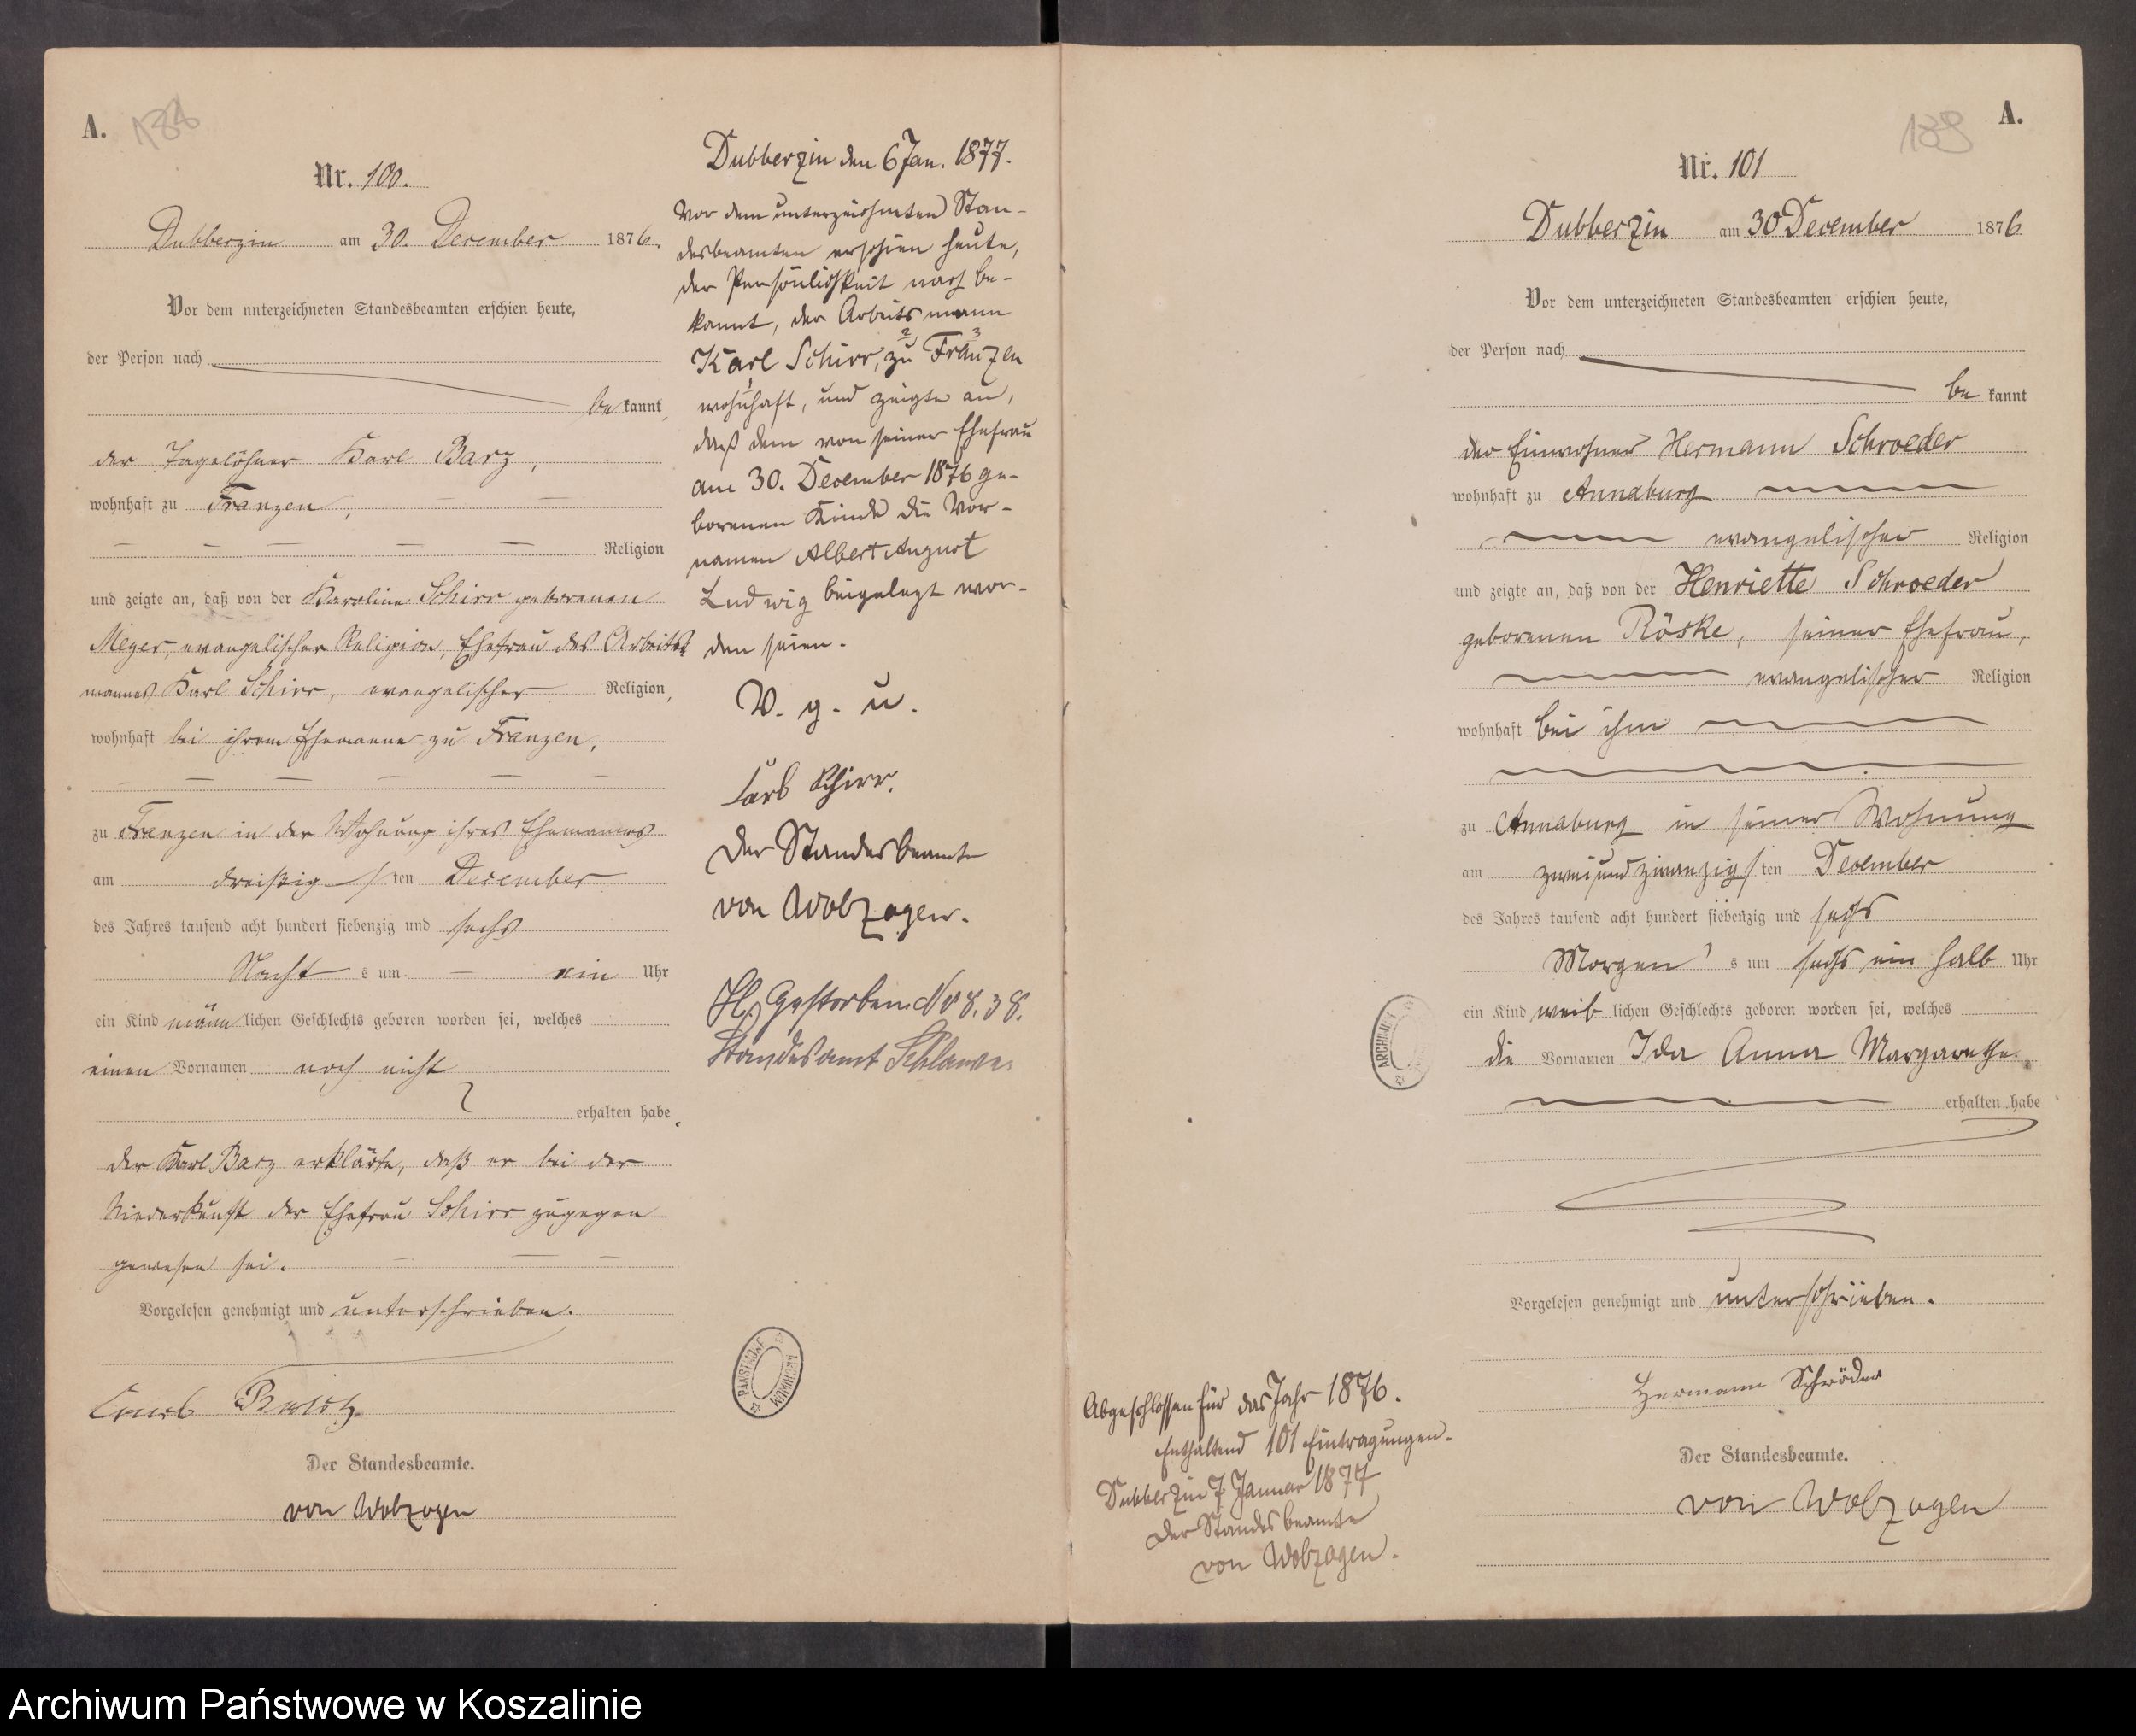 A.
188
Nr. 100.
Dubberzin am 30. December 1876.
Vor dem unterzeichneten Standesbeamten erschien heute,
der Person nach
be kannt,
der Tagelöhner Karl Barz,
wohnhaft zu Franzen,
Religion
und zeigte an, daß von der Karoline Schirr geborenen
Meyer, evangelischer Religion, Ehefrau des Arbeits-
mannes Karl Schirr, evangelischer Religion,
wohnhaft bei ihrem Ehemanne zu Franzen,
zu Franzen in der Wohnung ihres Ehemannes
am dreißig ten December
des Jahres tausend acht hundert siebenzig und sechs
Nacht s um ein Uhr
ein Kind männ lichen Geschlechts geboren worden sei, welches
einen Vornamen noch nicht
erhalten habe.
Der Karl Barz erklärte, daß er bei der
Niederkunft der Ehefrau Schirr zugegen
gewesen sei.
Vorgelesen genehmigt und unterschrieben.
Der Standesbeamte.
von Wolzogen
Dubberzin den 6 Jan. 1877.
Vor dem unterzeichneten Stan-
desbeamten erschien heute,
der Persönlichkeit nach be-
kannt, der Arbeitsmann
Karl Schirr, zu Franzen
wohnhaft, und zeigte an,
daß dem von seiner Ehefrau
am 30. December 1876 ge-
borenen Kinde die Vor-
namen Albert August
Ludwig beigelegt wor-
den seien.
V. g. u.
Karl Schirr.
Der Standesbeamte
von Wolzogen.
Gestorben Nr 8. 38.
Standesamt Schlawe.
PAŃSTWOWE ARCHIWUM
A.
189
Nr. 101
Dubberzin am 30 December 1876
Vor dem unterzeichneten Standesbeamten erschien heute,
der Person nach
be kannt
der Einwohner Hermann Schroeder
wohnhaft zu Annaburg
evangelischer Religion
und zeigte an, daß von der Henriette Schroeder
geborenen Röske, seiner Ehefrau,
evangelischer Religion
wohnhaft bei ihm
zu Annaburg in seiner Wohnung
am zweiundzwanzig ten December
des Jahres tausend acht hundert siebenzig und sechs
Morgen s um sechs ein halb Uhr
ein Kind weib lichen Geschlechts geboren worden sei, welches
die Vornamen Ida Anna Margarethe
erhalten habe
Vorgelesen genehmigt und unterschrieben.
Hermann Schröder
Der Standesbeamte.
von Wolzogen
ARCHIWUM
Abgeschlossen für das Jahr 1876.
Enthaltend 101 Eintragungen.
Dubberzin 7 Januar 1877
Der Standesbeamte
von Wolzogen.
Archiwum Państwowe w Koszalinie